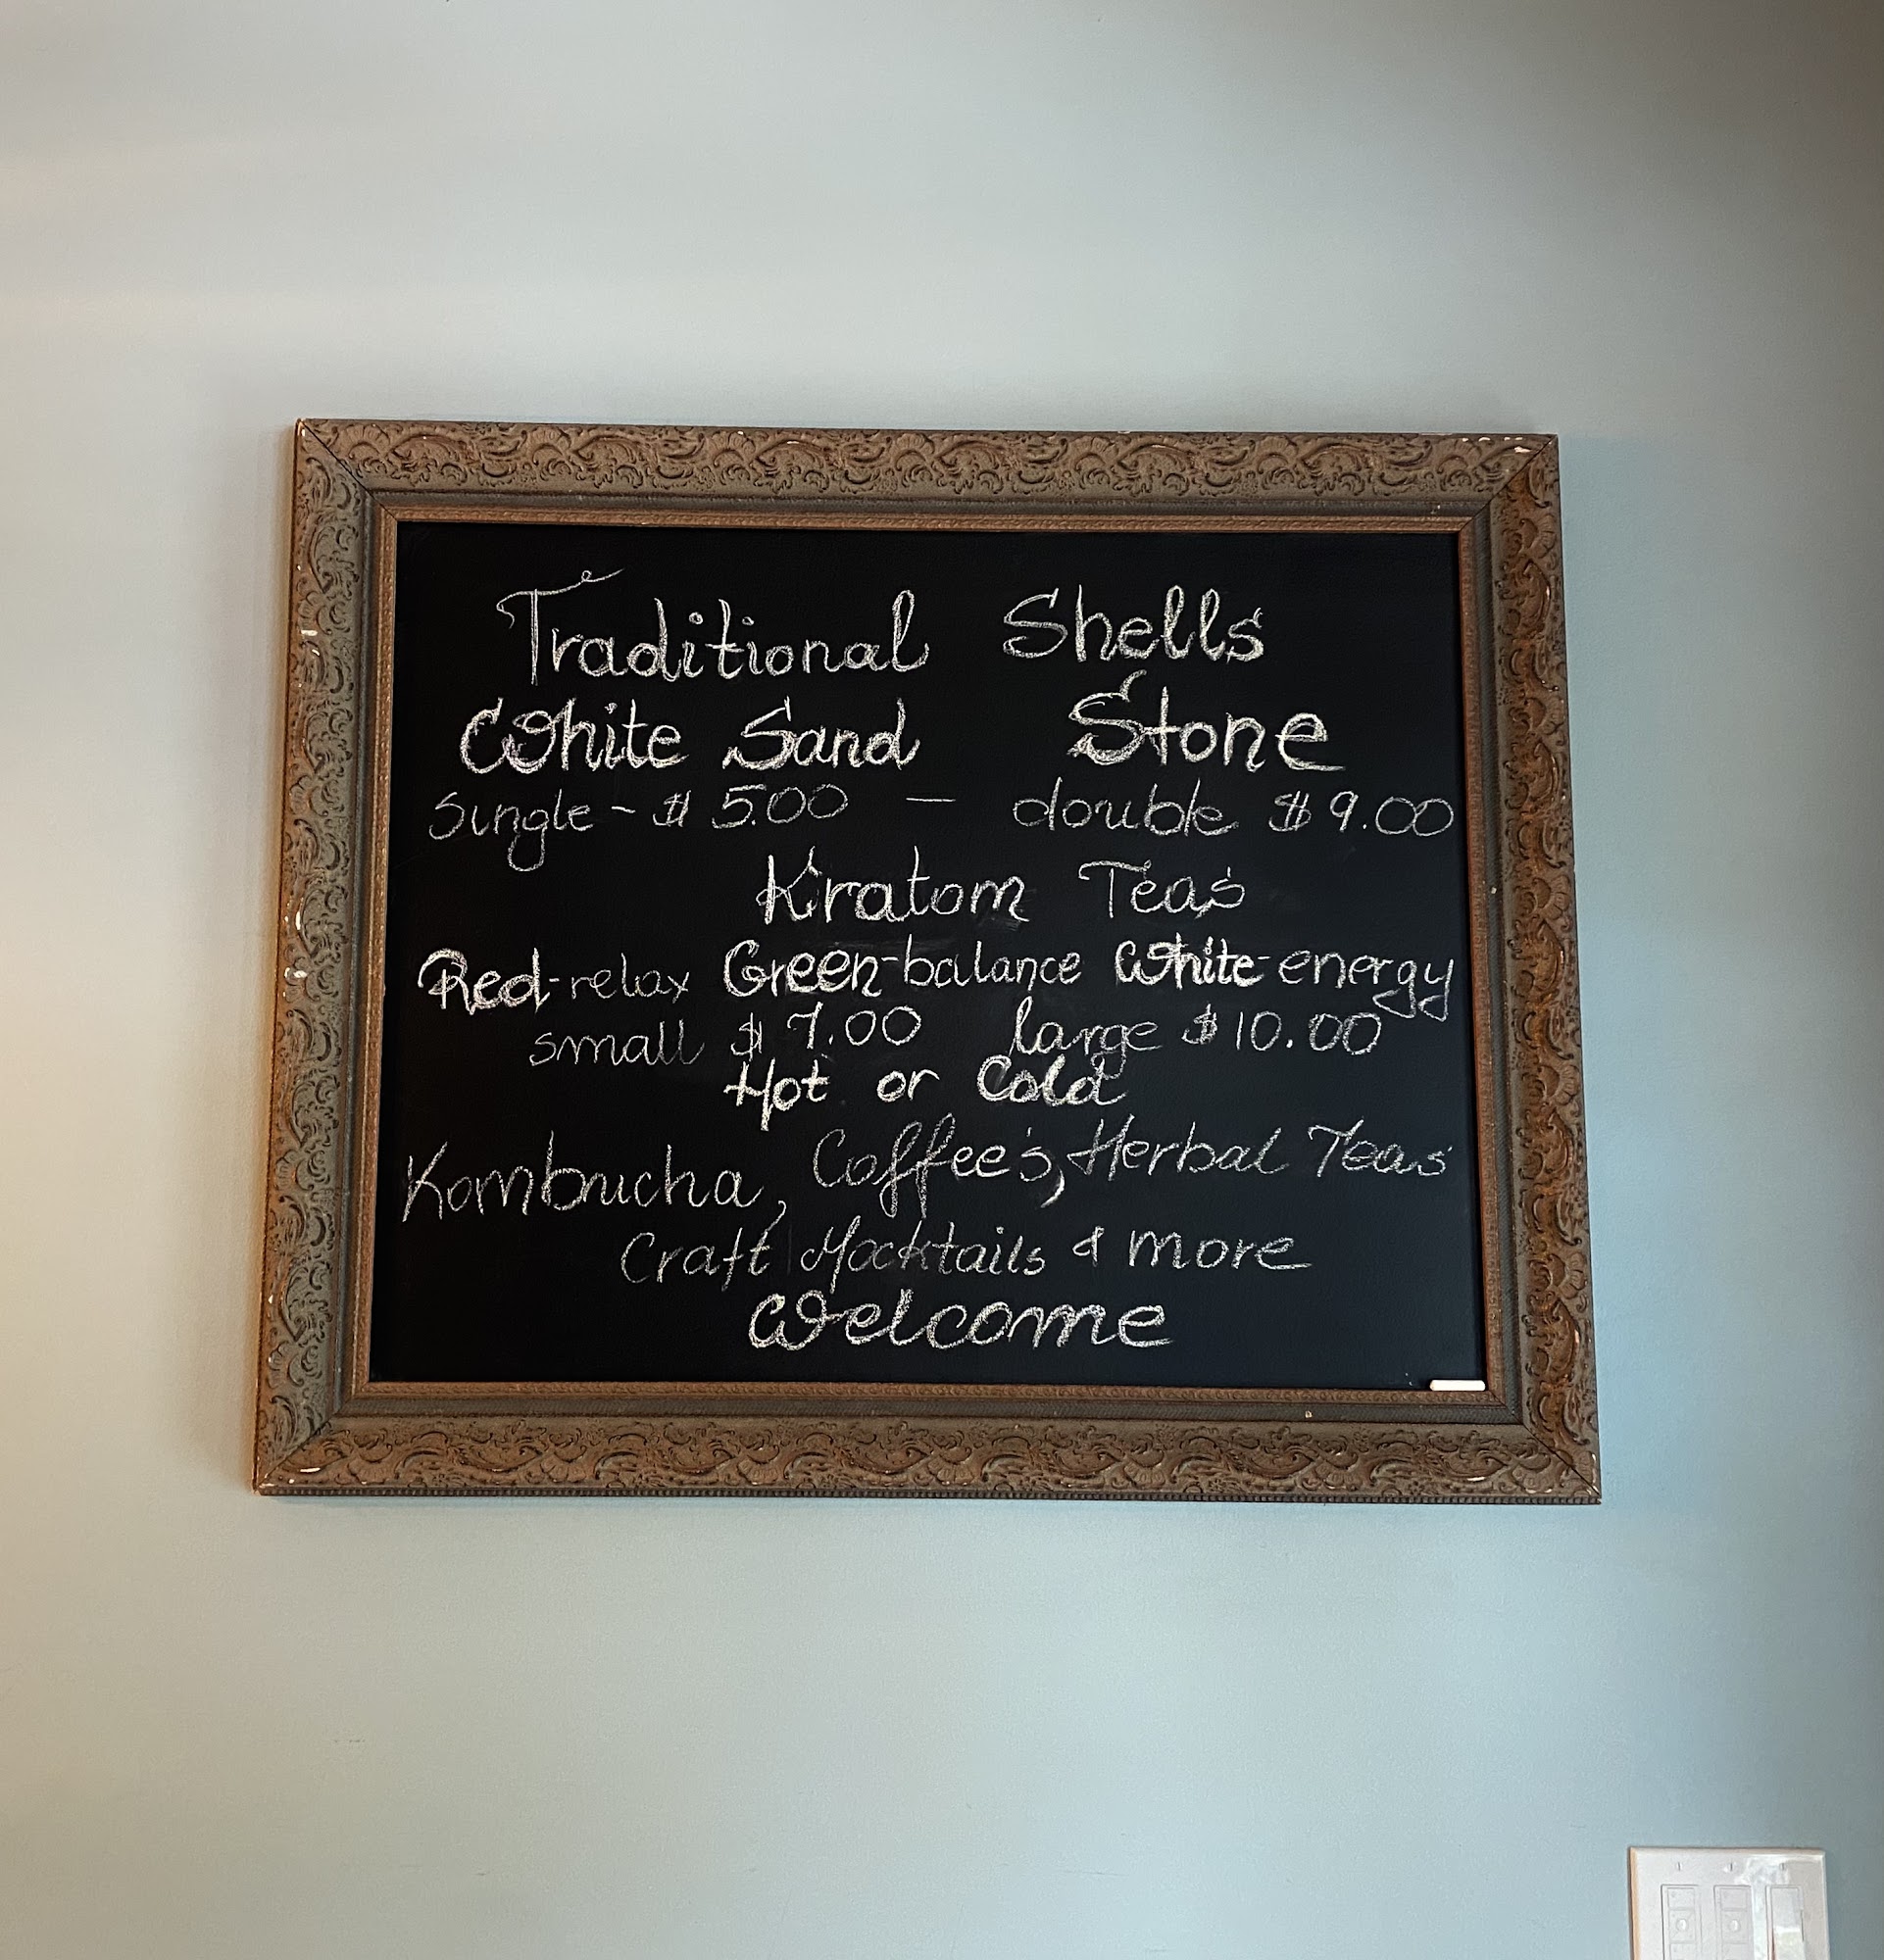 Traditional Shells
White Sand Stone
Single - $ 5.00 — double $ 9.00
Kratom Teas
Red-relax Green-balance White-energy
small $ 7.00 large $ 10.00
Hot or Cold
Kombucha, Coffee's, Herbal Teas
Craft Mocktails & more
Welcome